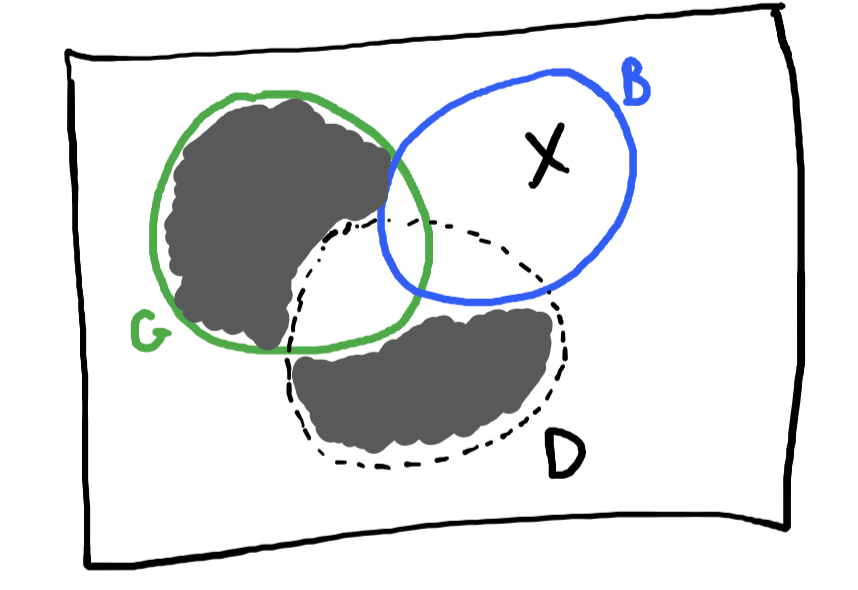 B
X
G
D